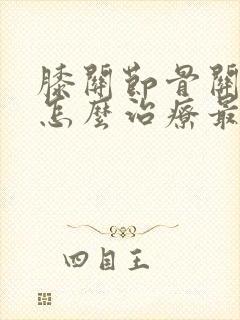 膝關節骨關
怎麼治療最
四目王